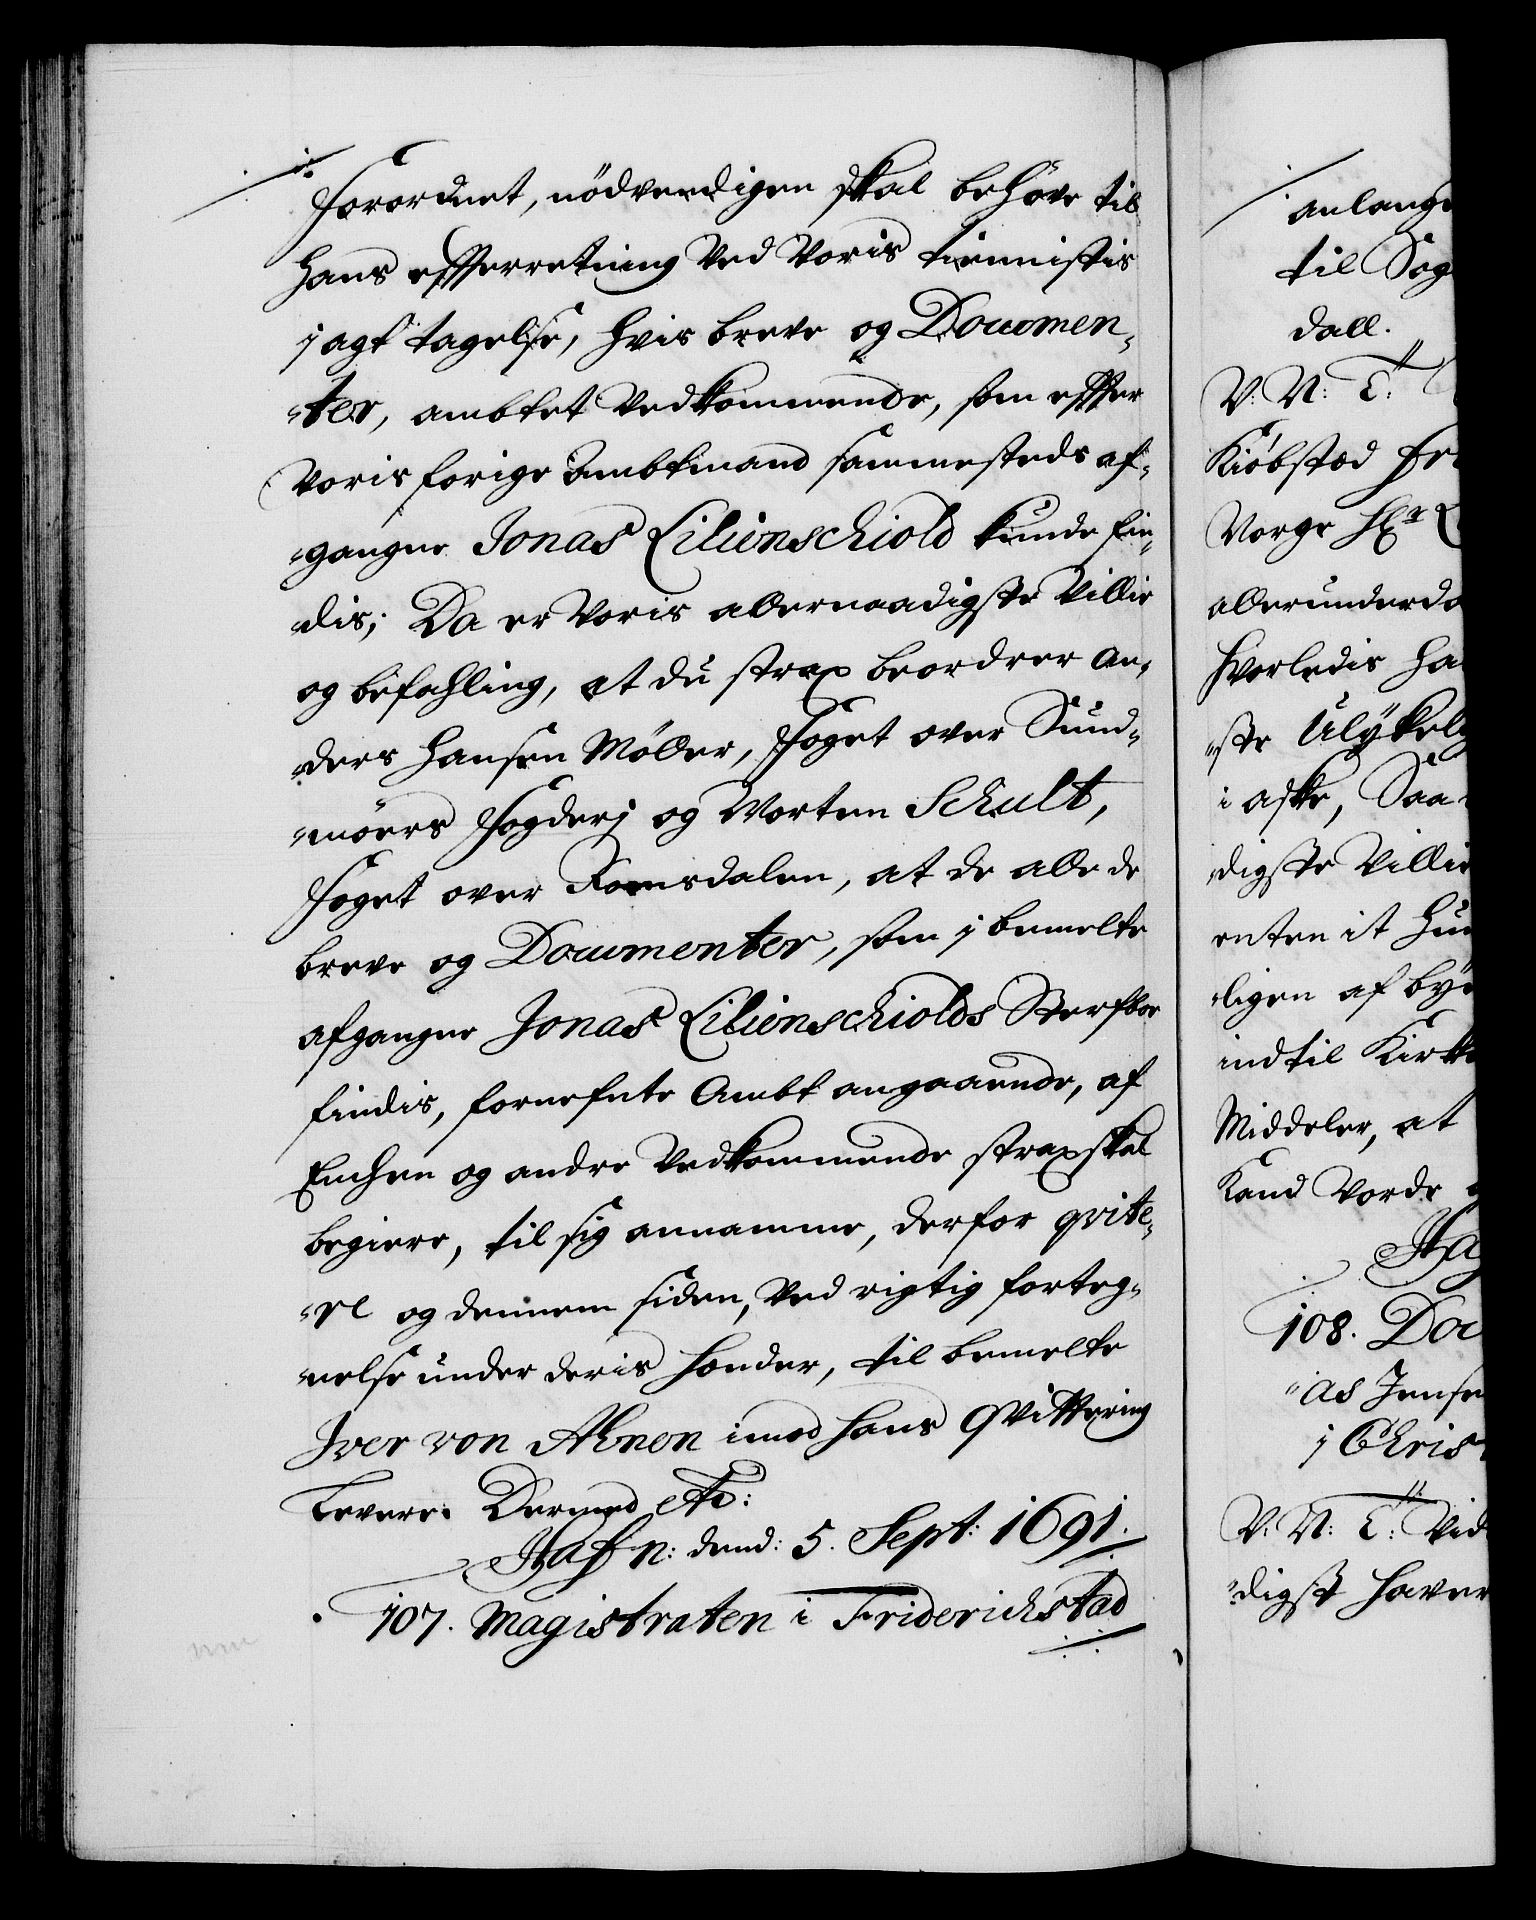 forordnet, nödvendigen skal behöve til
hans efterretning ved Voris tiennistis
jagt tagelse, hvis breve og Documen¬
¬ter, ambtet Vedkommende, som efter
Voris forige Ambtmand sammesteds af¬
¬gangne Jonas Lilienschiold kunde fin¬
dis; Da er Voris allernaadigste Villie
og befahling, at du strax beordrer An¬
ders Hansen Möller, foget over Sund¬
¬möers fogderj og Morten Schult,
foget over Romsdalen, at de alle de
breve og Documenter, som j bemelte
afgangne Jonas Lilienschiolds Sterfboe
findis, fornefnte Ambt angaaende, af
Enchen og andre Vedkommende strax skal
begiere, til sig annamme, derfor qvite¬
¬re og dennem siden, Ved rigtig forteg¬
nelse under deris hender, til bemelte
Iver von Ahnen imod hans Qvittering
levere. Dermed etc:
Hafn: dend: 5. Sept: 1691.
107. Magistraten i Friderichstad
anlange
til Sog
dall.
V. N: T:
Kiöbsted Fr
Vorge Hr
allerunderda
hvorledis ha
¬ste Ulykel
i aske, Saa
digste Villie
enten it hu
ligen af by
indtil Kirk
Middeler, at
Kand Vorde
Ha
108. Do
¬as Jense
j Chris
V. N: T: Vid
digst haver